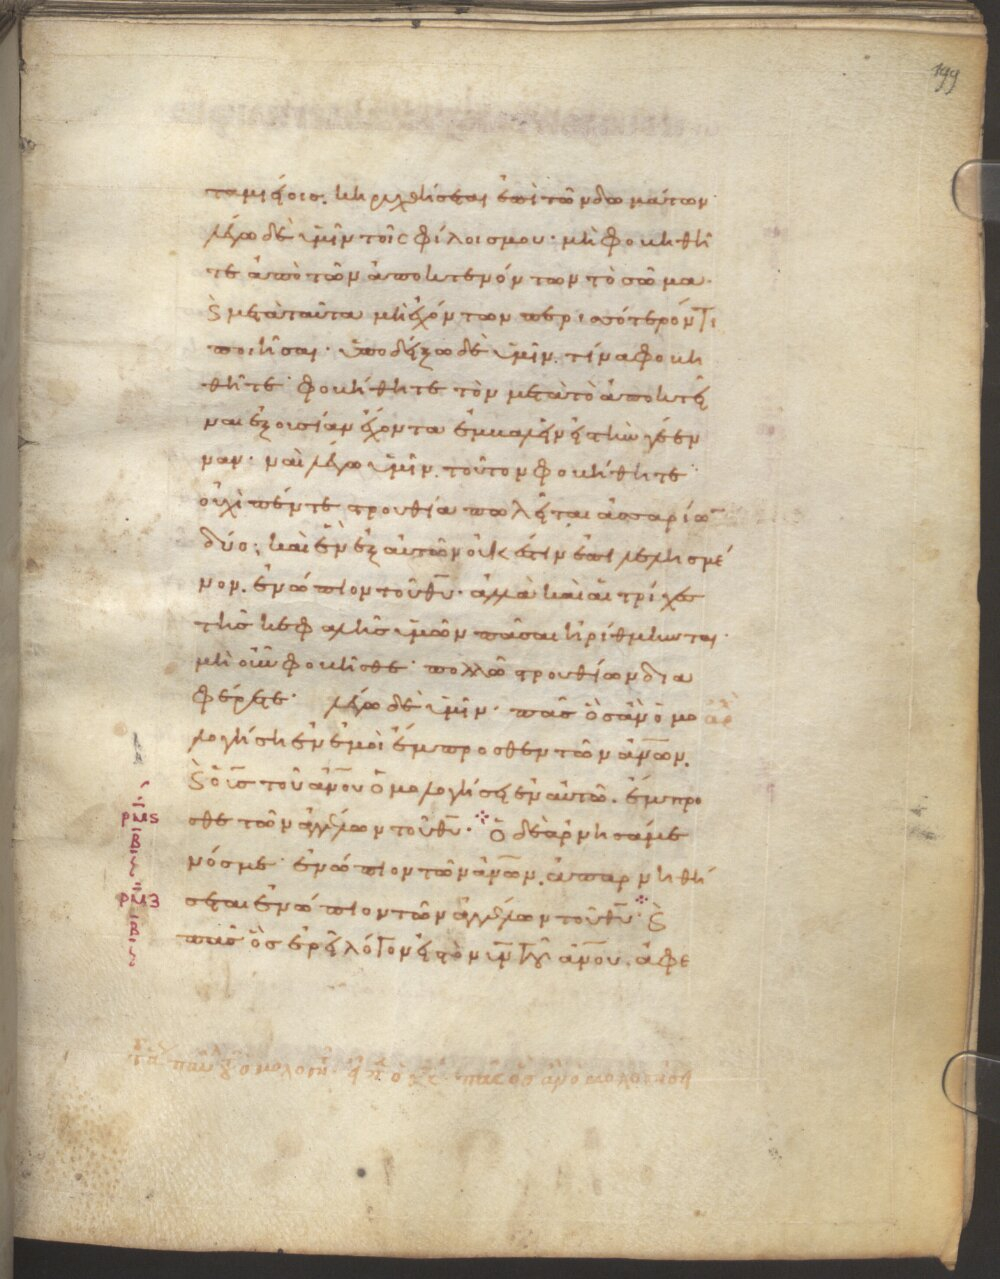 199
ταμιείοις. κηρυχθήσεται ἐπὶ τῶν δωμάτων·
λέγω δὲ ὑμῖν τοῖς φίλοις μου· μὴ φοβηθῆ
τε ἀπὸ τῶν ἀποκτενόντων τὸ σῶμα·
ϗ μετὰ ταῦτα μὴ ἐχόντων περισσότερόν τι
ποιῆσαι· ὑποδείξω δὲ ὑμῖν. τίνα φοβη
θῆτε· φοβήθητε τὸν μετὰ τὸ ἀποκτεῖ
ναι ἐξουσίαν ἔχοντα ἐμβαλεῖν εἰς τὴν γέεν
ναν· ναὶ λέγω ὑμῖν. τοῦτον φοβήθητε·
οὐχὶ πέντε στρουθία πωλεῖται ἀσσαρίω̅
δύο; καὶ ἓν ἐξ αὐτῶν οὐκ ἔστιν ἐπιλελησμέ
νον. ἐνώπιον τοῦ θ̅υ̅· ἀλλὰ καὶ αἱ τρίχες
τῆς κεφαλῆς ὑμῶν πᾶσαι ἠρίθμηνται·
μὴ οὖν φοβῆσθε· πολλῶ στρουθίων δια
φέρετε· λέγω δὲ ὑμῖν· πᾶς ὃς ἂν ὁμο
λογήση ἐν ἐμοὶ ἔμπροσθεν τῶν ἀ̅ν̅ω̅ν̅.
ϗ ὁ υ̅ς̅ τοῦ ἀ̅ν̅ο̅υ̅ ὁμολογήσει ἐν αὐτῶ. ἔμπρο
ρμς
σθε τῶν ἀγγέλων τοῦ θ̅υ̅· ὁ δὲ ἀρνησάμε
β
νός με· ἐνώπιον τῶν ἀ̅ν̅ω̅ν̅. ἀπαρνηθή
ρμζ
σεται ἐνώπιον τῶν ἀγγέλων τοῦ θ̅υ̅· ϗ
β
πᾶς ὃς ἐρεῖ λόγον εἰς τὸν υ̅ν̅ τοῦ ἀ̅ν̅ο̅υ̅. ἀφε
πᾶς ὃς ἂν ὁμολογήσει